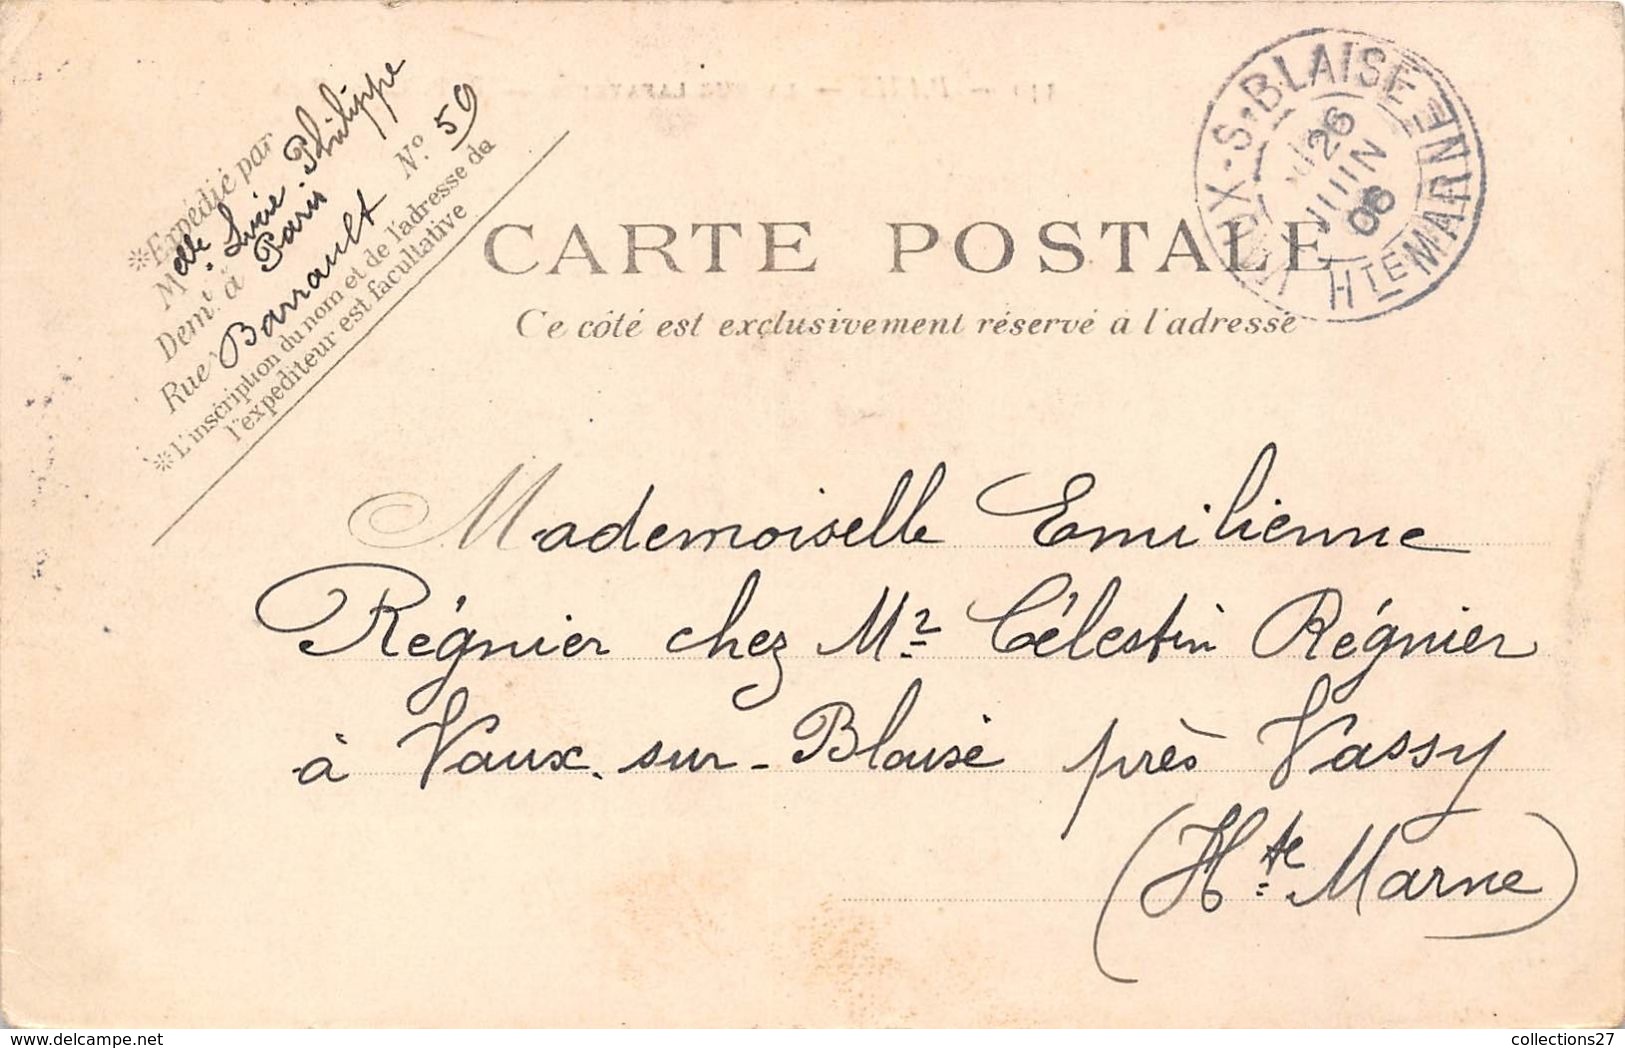 ※Expédié par
Melle. Lucie Philippe
Demt à Paris
Rue Barrault No. 59
※L'inscription du nom et de l'adresse de
l'expéditeur est facultative
VAUX-S-BLAISE
26
JUIN
06
HTE MARNE
CARTE POSTALE
Ce côté est exclusivement réservé à l'adresse
Mademoiselle Emilienne
Régnier chez Mr Célestin Régnier
à Vaux-sur-Blaise près Vassy
(Hte Marne)
www.delcampe.net
collections27